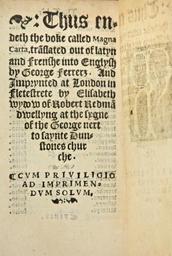 Thus en-
deth the boke called Magna
Carta, trāslated out of latyn
and Frenshe into Englysh
by George Ferrerz. And
Imprynted at London in
Fletestrete by Elisabeth
wydow of Robert Redmā
dwellyng at the sygne
of the George nert
to saynte Dun-
stones chur
che.
CVM PRIVILIGIO
AD IMPRIMEN-
DVM SOLVM,